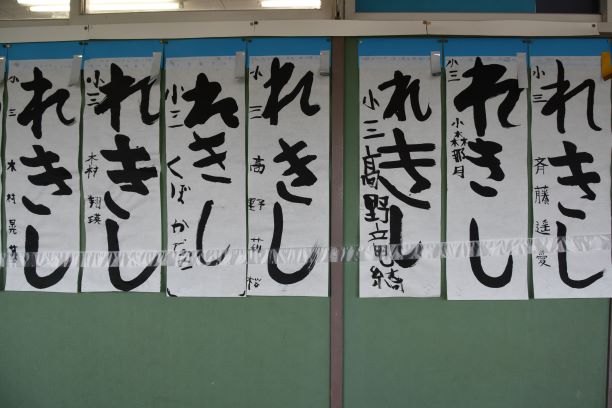 れきし
小三 斉藤遥愛
れきし
小三 小森那月
れきし
小三 高野
れきし
小三 高野 桜
れきし
小三 くぼか
れきし
小三 木村翔瑛
れきし
小三 木村晃